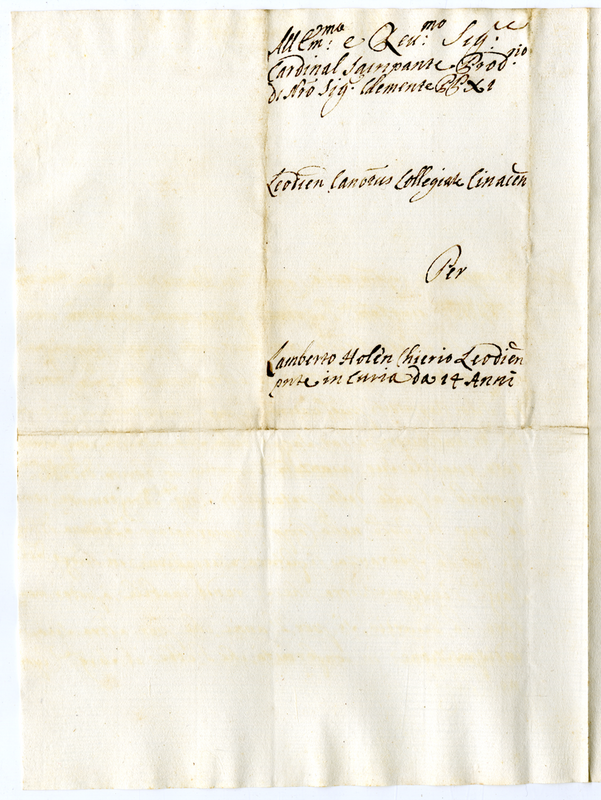 All Em:mo e Reu:mo Sig:re
Cardinal Sacripante Prod:rio
di Nro Sig:r Clemente PP XI
Leodien Canotus Collegiate Cinacen
Per
Lamberto Holen Chierio Leodien
pnte in Curia da 14 Anni